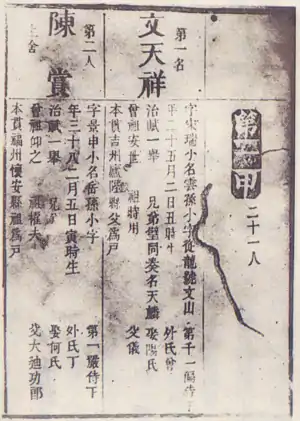 第一甲
二十一人
第一名
文天祥
字宋瑞小名雲孫小字從龍
第千一偏侍下
年二十五月二日丑時生
外氏曾
治賦一舉
兄弟
同奏名天麟
娶歐陽氏
曾祖安世
祖時用
父儀
本貫吉州廬陵縣父為戶
第二人
陳賞
上舍
字景申小名岳孫小字
第一嚴侍下
年三十
二月五日寅時生
外氏丁
治賦一舉
兄
娶何氏
曾祖仰之
祖
夫
父大
功郎
本貫福州懷安縣祖為戶